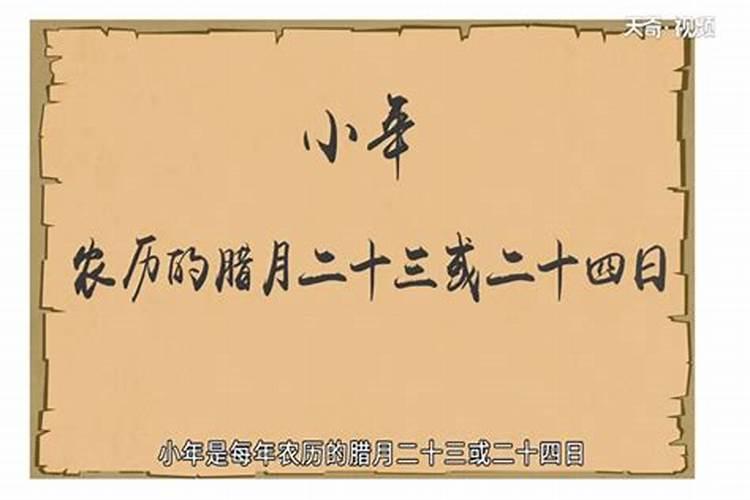 天奇·视频
小年
农历的腊月二十三或二十四日
小年是每年农历的腊月二十三或二十四日